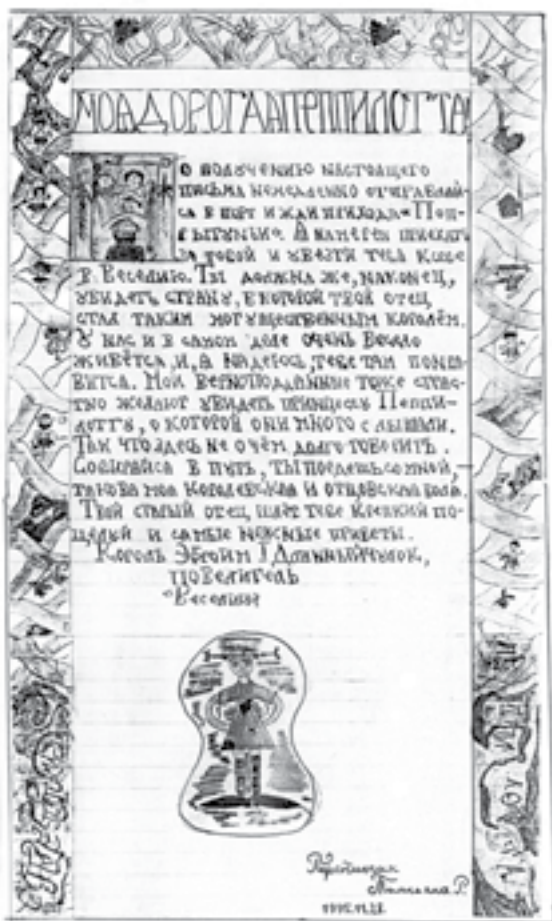 МОЯ ДОРОГАЯ ПЕППИЛОТТА
По получению настоящего
письма немедленно отправляй-
ся в порт и жди прихода «Поп-
рыгуньи». Я намерен приехать
за тобой и увезти тебя к себе
в Веселию. Ты должна же, наконец,
увидеть страну, в которой твой отец
стал таким могущественным королём.
У нас и в самом деле очень весело
живётся, и, я надеюсь, тебе там понра-
вится. Мои верноподданные тоже страс-
тно желают увидеть принцессу Пеппи-
лотту, о которой они много слышали.
Так что здесь не о чём долго говорить.
Собирайся в путь, ты поедешь со мной, –
такова моя королевская и отцовская воля.
Твой старый отец шлёт тебе крепкий по-
целуй и самые нежные приветы.
Король Эфроим I Длинныйчулок,
повелитель
Веселии